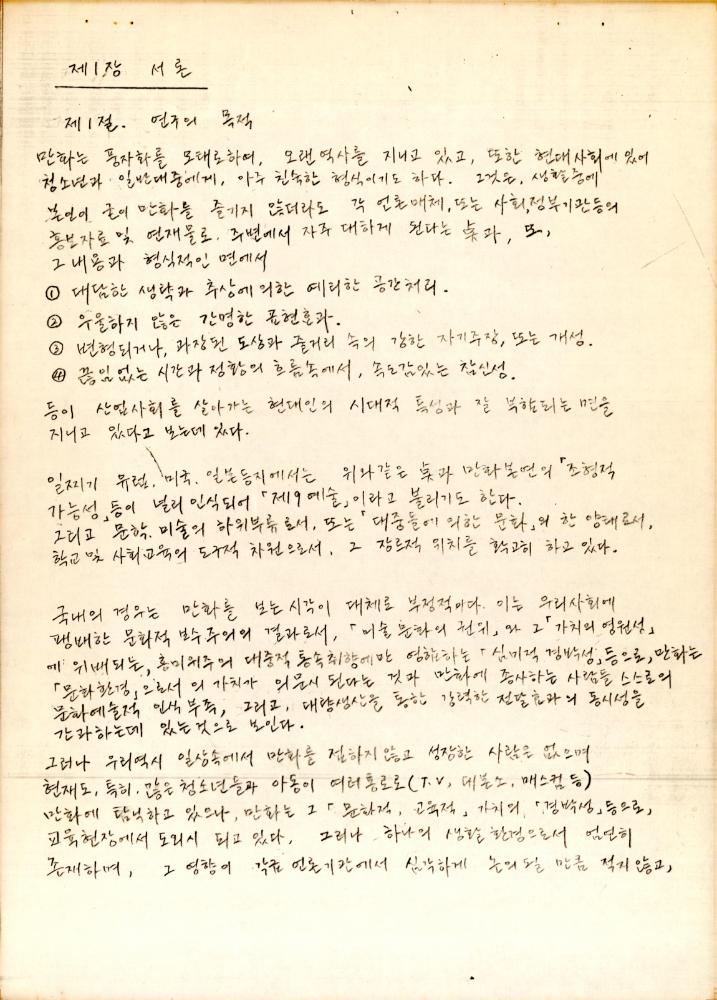 제1장 서론
제1절. 연구의 목적
만화는 풍자화를 모태로하여, 오랜역사를 지니고 있고, 또한 현대사회에 있어
청소년과 일반대중에게, 아주 친숙한 형식이기도 하다. 그것은, 생활중에
본인이 굳이 만화를 즐기지 않더라도 각 언론매체, 또는 사회,정부기관등의
홍보자료 및 연재물로. 주변에서 자주 대하게 된다는 점과, 또,
그 내용과 형식적인 면에서
① 대담한 생략과 추상에 의한 예리한 공간처리.
② 우울하지 않은 간명한 표현효과.
③ 변형되거나, 과장된 도상과 줄거리 속의 강한 자기주장, 또는 개성.
④ 끊임없는 시간과 정황의 흐름속에서, 속도감있는 참신성.
등이 산업사회를 살아가는 현대인의 시대적 특성과 잘 부합되는 면을
지니고 있다고 보는데 있다.
일찌기 유럽, 미국, 일본등지에서는 위와같은 점과 만화본연의 「조형적
가능성」등이 널리 인식되어 「제9예술」이라고 불리기도 한다.
그리고 문학, 미술의 하위부류로서, 또는 「대중들에 의한 문화」의 한 양태로서,
학교 및 사회교육의 도구적 차원으로서, 그 장르적 위치를 확고히 하고 있다.
국내의 경우는 만화를 보는 시각이 대체로 부정적이다. 이는 우리사회에
팽배한 문화적 보수주의의 결과로서, 「미술문화의 권위」와 그 「가치의 영원성」
에 위배되는, 흥미위주의 대중적 통속취향에만 영합하는 「심미적 경박성」등으로, 만화는
「문화환경」으로서의 가치가 의문시 된다는 것과 만화에 종사하는 사람들 스스로의
문화예술적 인식부족, 그리고, 대량생산을 통한 강력한 전달효과의 동시성을
간과하는데 있는것으로 보인다.
그러나 우리역시 일상속에서 만화를 접하지않고 성장한 사람은 없으며
현재도, 특히. 많은 청소년들과 아동이 여러통로로 (T.V, 대본소, 매스컴 등)
만화에 탐닉하고 있으나, 만화는 그 「문화적, 교육적」가치의 「경박성」등으로,
교육현장에서 도외시 되고 있다. 그러나 하나의 생활환경으로서 엄연히
존재하며, 그 영향이 각급 언론기관에서 심각하게 논의될 만큼 적지않고,